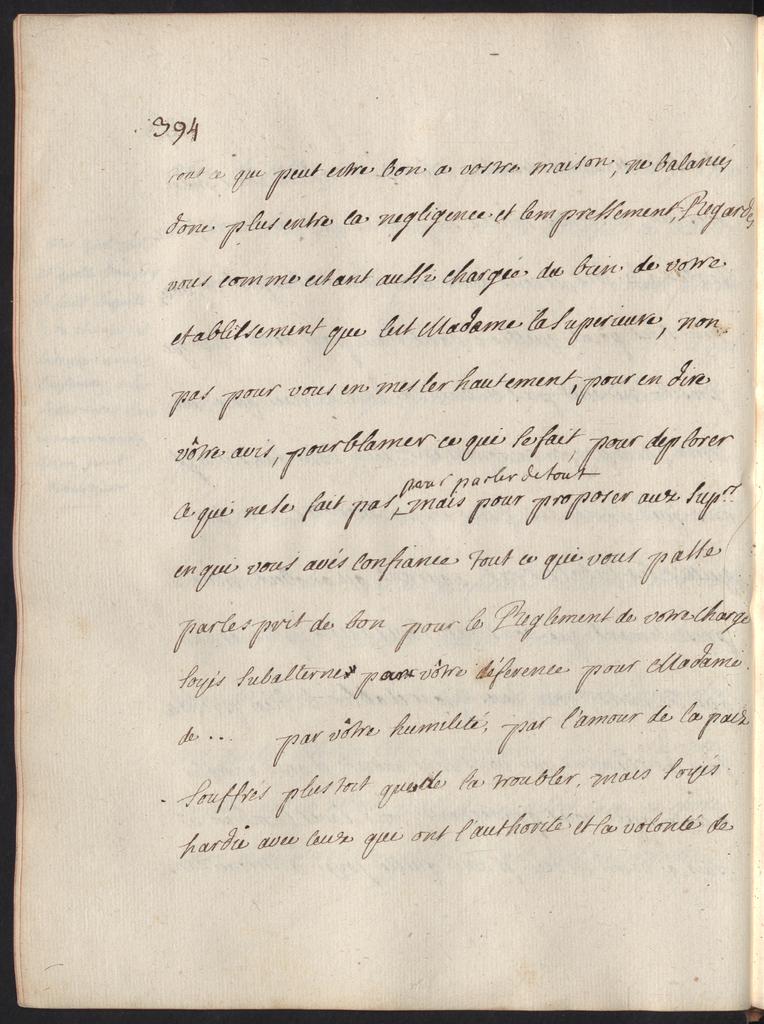 394
tout ce que peut estre bon a vostre maison, ne balancés
donc plus entre la negligence et lempressement, Regardés
vous comme estant aussi chargée du bien de votre
etablissement que lest Madame la Superieure, non
pas pour vous en mesler hautement, pour en dire
vôtre avis, pour blamer ce qui se fait, pour deplorer
pour parler de tout
ce qui ne se fait pas, mais pour proposer aux supres
en qui vous avés confiance tout ce qui vous passe
par lesprit de bon pour le Reglement de votre charge
soyés subalterne par vôtre déference pour Madame
de ... par vôtre humilité, par l'amour de la paix
souffrés plustost que de la troubler, mais soyés
hardie avec ceux que ont l'authorité et la volonté de